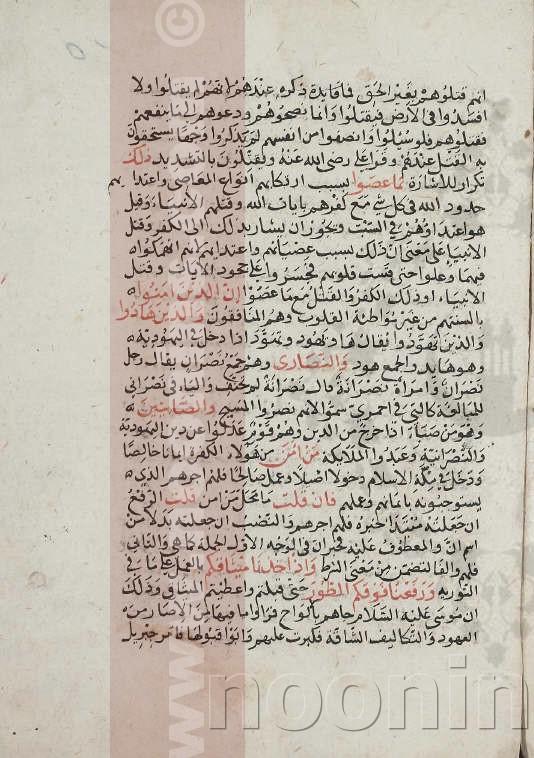 انهم قتلوهم بغير الحق فما فايدة ذكره عندهم لانهم لم يقتلوا ولا
افسدوا في الارض فيقتلوا وانما نصحوهم ودعوهم الى ما ينفعهم
فقتلوهم فلو سئلوا وانصفوا من انفسهم لم يذكروا وجها يستحقون
به القتل عندهم وقرا علي رضي الله عنه ويقتلون بالتشديد ذلك
تكرار للاشارة بما عصوا بسبب ارتكابهم انواع المعاصي واعتدايهم
حدود الله في كل شي مع كفرهم بايات الله وقتلهم الانبياء وقيل
هو اعتداؤهم في السبت ويجوز ان يشار بذلك الى الكفر وقتل
الانبيا على معنى ان ذلك بسبب عصيانهم واعتدايهم لانهم انهمكوا
فيهما وغلوا حتى قست قلوبهم فجسروا على جحود الايات وقتل
الانبياء او ذلك الكفر والقتل مع ما عصوا ان الذين امنوا
بالسنتهم من غير مواطاة القلوب وهم المنافقون والذين هادوا
والذين تهودوا يقال هاد يهود وتهود اذا دخل في اليهودية
وهو هايد والجمع هود والنصارى وهو جمع نصران يقال رجل
نصران وامراة نصرانة قال نصرانة لم تحنف والياء في نصراني
للمبالغة كالتي في احمري سموا لانهم نصروا المسيح والصابئين
وهو من صبا اذا خرج من الدين وهم قوم عدلوا عن دين اليهودية
والنصرانية وعبدوا الملايكة من امن من هؤلاء الكفرة ايمانا خالصا
ودخل في ملة الاسلام دخولا اصيلا وعمل صالحا فلهم اجرهم الذي
يستوجبونه بايمانهم وعملهم فان قلت ما محل من امن قلت الرفع
ان جعلته مبتدا خبره فلهم اجرهم والنصب ان جعلته بدلا من
اسم ان والمعطوف عليه فخبر ان في الوجه الاول الجملة كما هي وفي الثاني
فلهم والفا لتضمن من معنى الشرط واذ اخذنا ميثاقكم بالعمل على ما في
التورية ورفعنا فوقكم الطور حتى قبلتم واعطيتم الميثاق وذلك
ان موسى عليه السلام جاهم بالالواح فراوا ما فيها من الاصار
العهود والتكاليف الشاقة فكبرت عليهم وابوا قبولها فامر جبريل
www
noonin